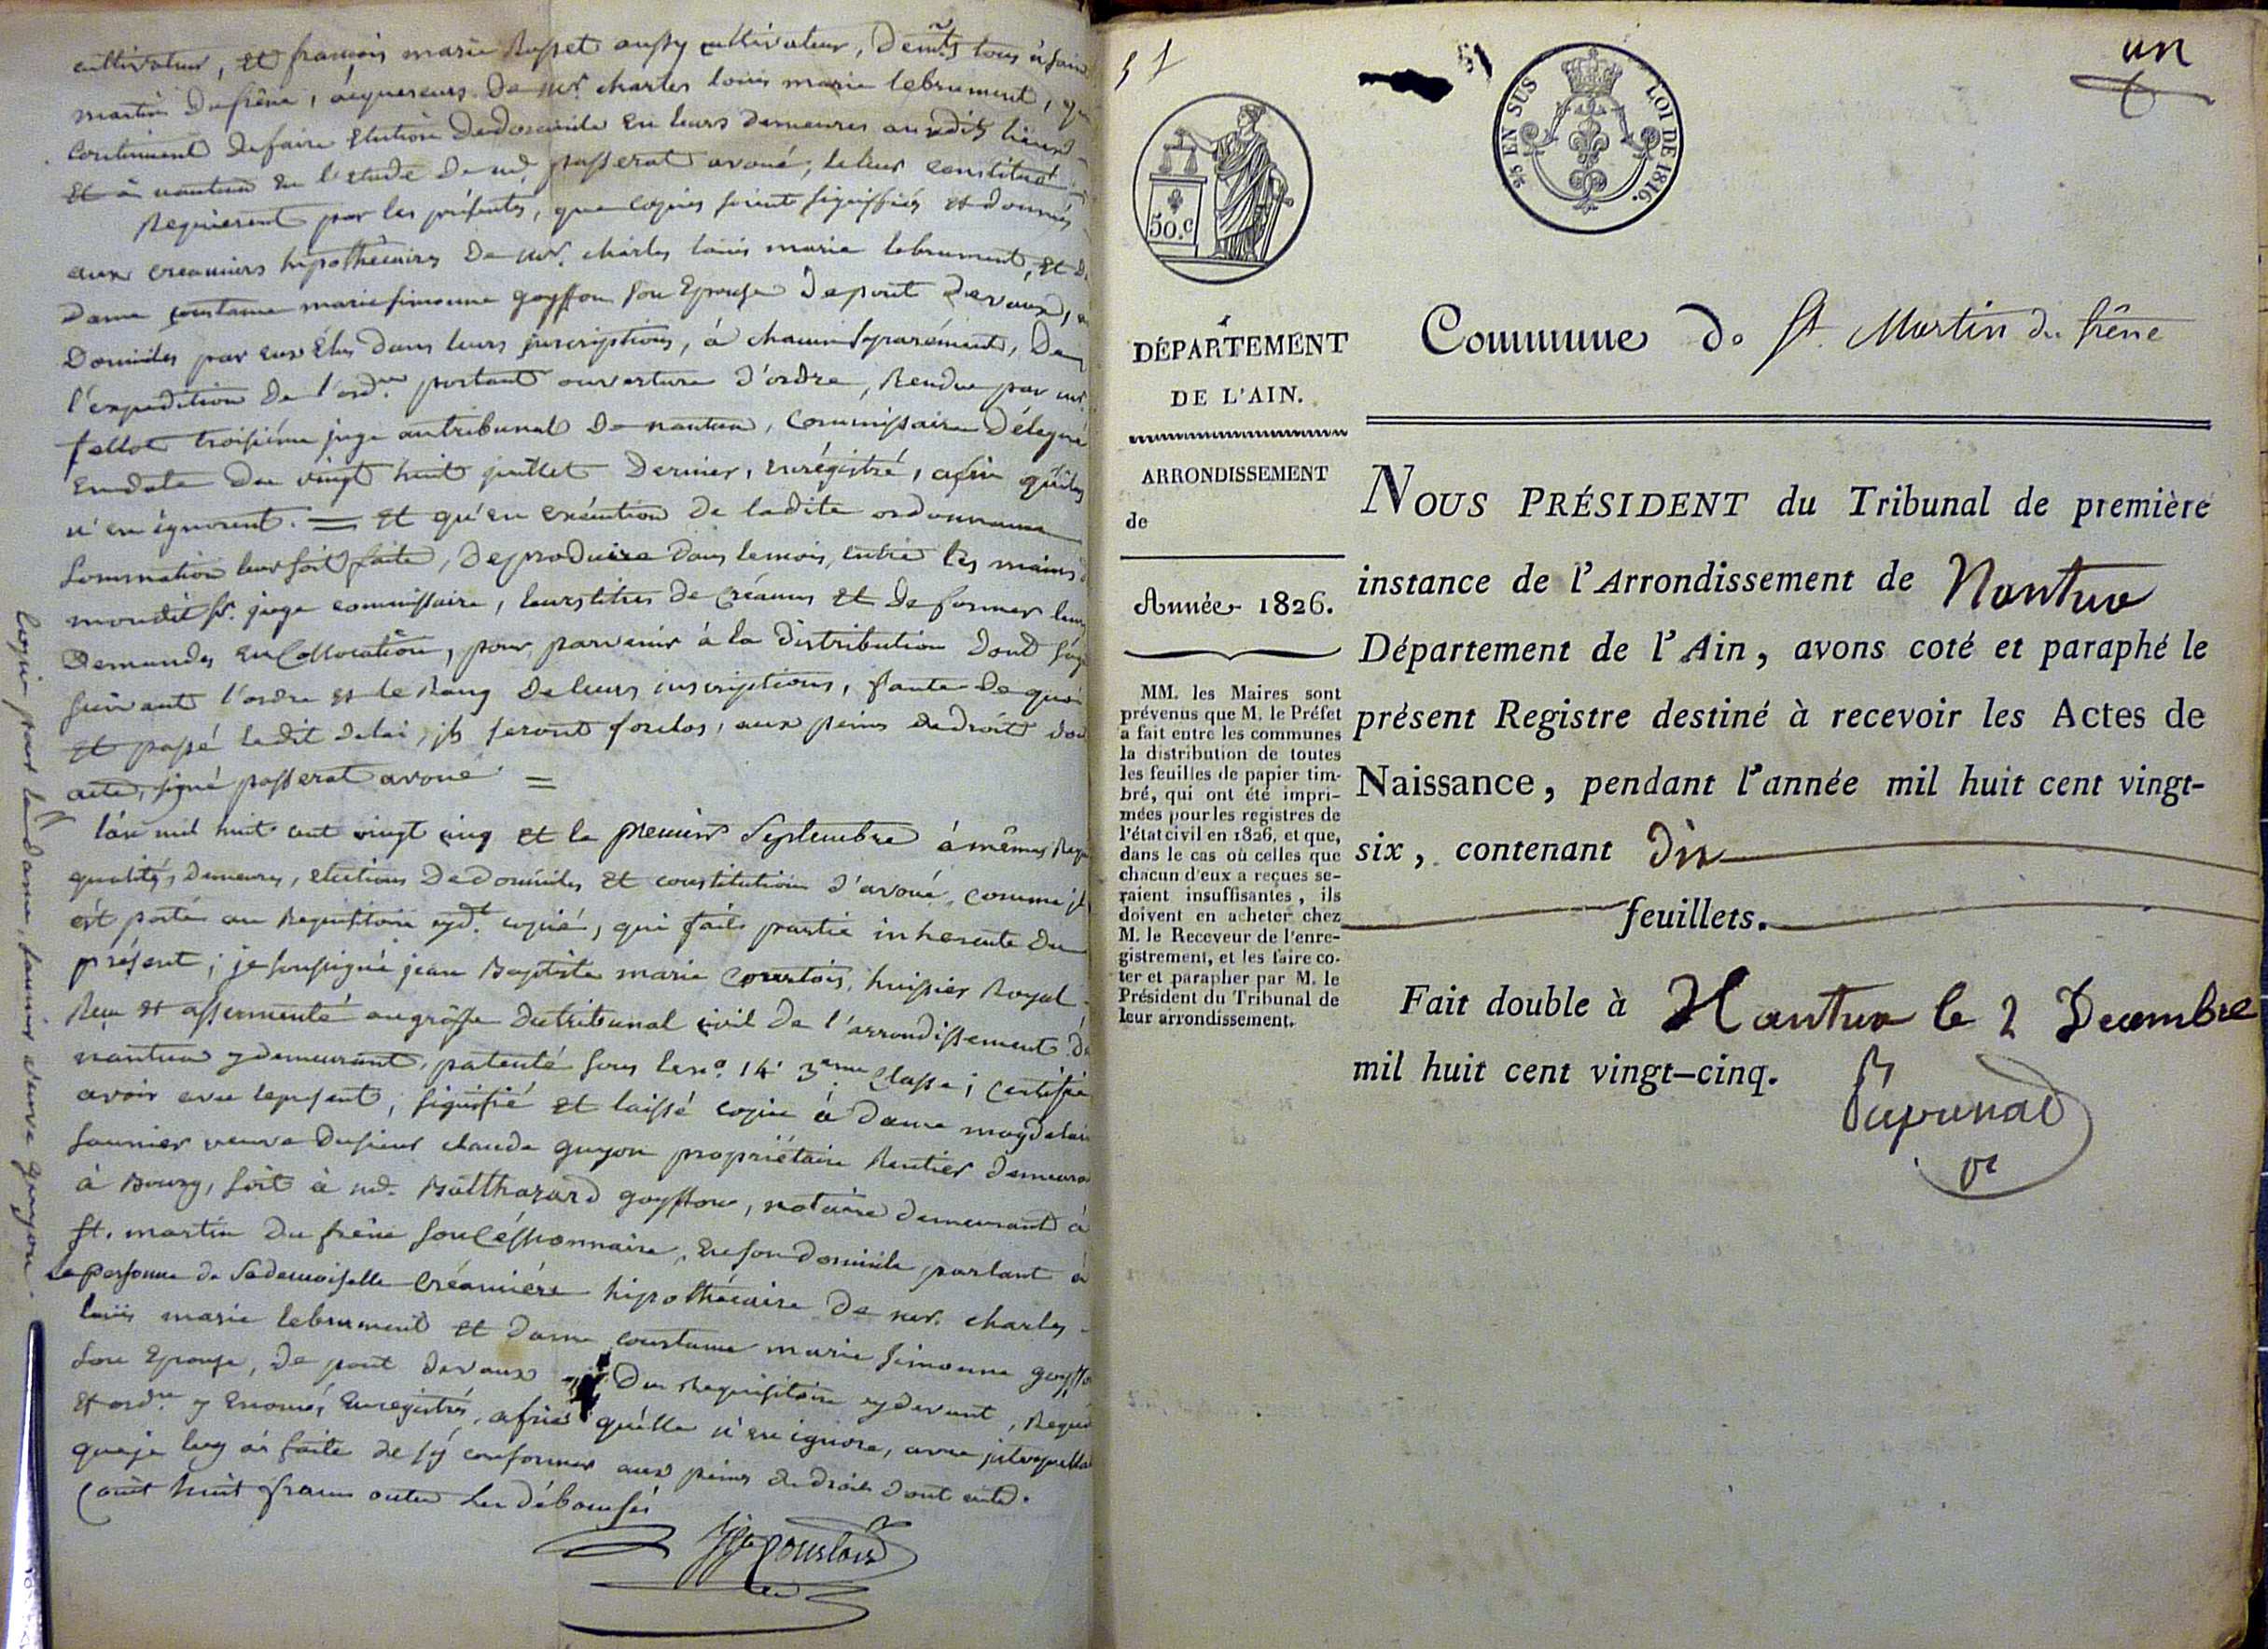 cultivateur, et françois marie Russet aussy cultivateur, Dem.ts tous à saint
martin Dufrêne, acquereurs de mr. charles louis marie lebrument,
Continuent de faire Election de domicile en leurs demeures ausdits lieux
Et à nantua en l'etude de md. passerat avoué, le leur constitué
Requierent par les présentes, que copies soient signiffiées et données
aux creanciers hipothécaires de mr. charles louis marie lebrument, et de
Dame constance marie simonne goyffon son Epouse de pont devaux,
Domiciles par eux Élus dans leurs inscriptions, à chacun separément, De
l'expedition de l'ord.ce portant ouverture d'ordre, Rendue par mr.
fellot troisiéme juge au tribunal de nantua, Commissaire délegué
En date du vingt huit juillet dernier, enrégistré, afin qu'ils
n'en ignorent. = Et qu'en exécution de ladite ordonnance
Sommation leur soit faite, de produire dans le mois, entre les mains de
mondit sr. juge commissaire, leurs titres de créances Et de former leurs
Demandes en Collocation, pour parvenir à la distribution dont s'agit
suivant l'ordre et le Rang de leurs inscriptions, faute de quoi
Et passé ledit delai, ils seront forclos, aux peines de droit dont
acte, signé passerat avoué =
l'an mil huit cent vingt cinq et le premier Septembre à mêmes Requ
qualités, demeures, elections de domiciles Et constitution d'avoué, comme il
est porté au Requisitoire cyd.t copié, qui fait partie inherente du
présent; je soussigné jean Baptiste marie Courtois, huissier Royal
Reçu et assermenté au grèffe du tribunal civil de l'arrondissement de
nantua y demeurant, patenté sous le no. 14 3eme Classe; Certifie
avoir avec le présent, signifié et laissé copie à dame magdelaine
Saunier veuve du sieur claude guyon propriétaire Rentier demeurant
à Bourg, soit à md. Balthazard goyffon, notaire demeurant à
St. martin du frêne son Céssionnaire, en son domicile parlant à
la personne de sa demoiselle Créanciére hipothécaire de mr. charles
louis marie lebrument et dame constance marie simonne goyffon
son Epouse, de pont devaux Du Requisitoire cy devant, Requete
Et ord.ce y Enoncés, Enregistrés, afin qu'elle n'en ignore, avec interpellation
que je luy ai faite de s'y conformer aux peines de droit dont acte.
Coût huit francs outre les déboursés
Jbte Courtois
Copie pour la dame saunier veuve guyon
51
51
un
50.c
25 EN SUS
LOI DE 1816.
DÉPARTEMENT
DE L'AIN.
ARRONDISSEMENT
de
Année 1826.
MM. les Maires sont
prévenus que M. le Préfet
a fait entre les communes
la distribution de toutes
les feuilles de papier tim-
bré, qui ont été impri-
mées pour les registres de
l'état civil en 1826, et que,
dans le cas où celles que
chacun d'eux a reçues se-
raient insuffisantes, ils
doivent en acheter chez
M. le Receveur de l'enre-
gistrement, et les faire co-
ter et parapher par M. le
Président du Tribunal de
leur arrondissement.
Commune de St. Martin du frêne
NOUS PRÉSIDENT du Tribunal de première
instance de l'Arrondissement de Nantua
Département de l'Ain, avons coté et paraphé le
présent Registre destiné à recevoir les Actes de
Naissance, pendant l'année mil huit cent vingt-
six, contenant dix
feuillets.
Fait double à Nantua le 2 Decembre
mil huit cent vingt-cinq.